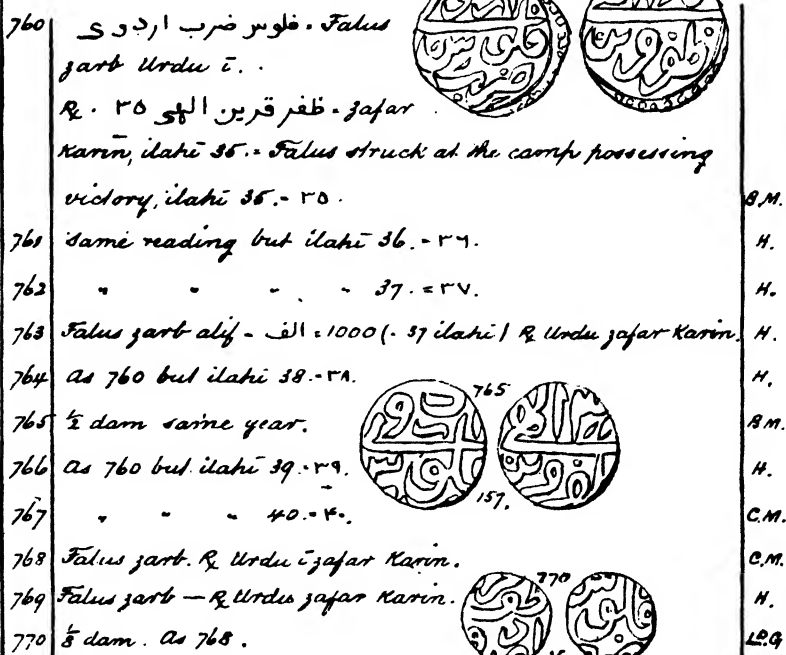 760 فلوس ضرب اردوی . Falus
zarb Urdu ī. .
R. . ظفر قرین الهی ٣٥ . zafar
Karīn, ilahī 35. = Falus struck at the camp possessing
victory, ilahi 35. - ٣٥ . B.M.
761 Same reading but ilahi 36. - ٣٦. H.
762 " " " " 37. = ٣٧. H.
763 Falus zarb alif - الف = 1000 (. 37 ilahi) R Urdu zafar Karin. H.
764 As 760 but ilahi 38. - ٣٨. H.
765
765 ½ dam same year. B.M.
766 As 760 but ilahi 39. - ٣٩. H.
157.
767 " " " 40. - ۴٠. C.M.
768 Falus zarb. R Urdu ī zafar Karin. C.M.
770
769 Falus zarb — R Urdu zafar Karin. H.
770 ⅛ dam. As 768. Ld.G